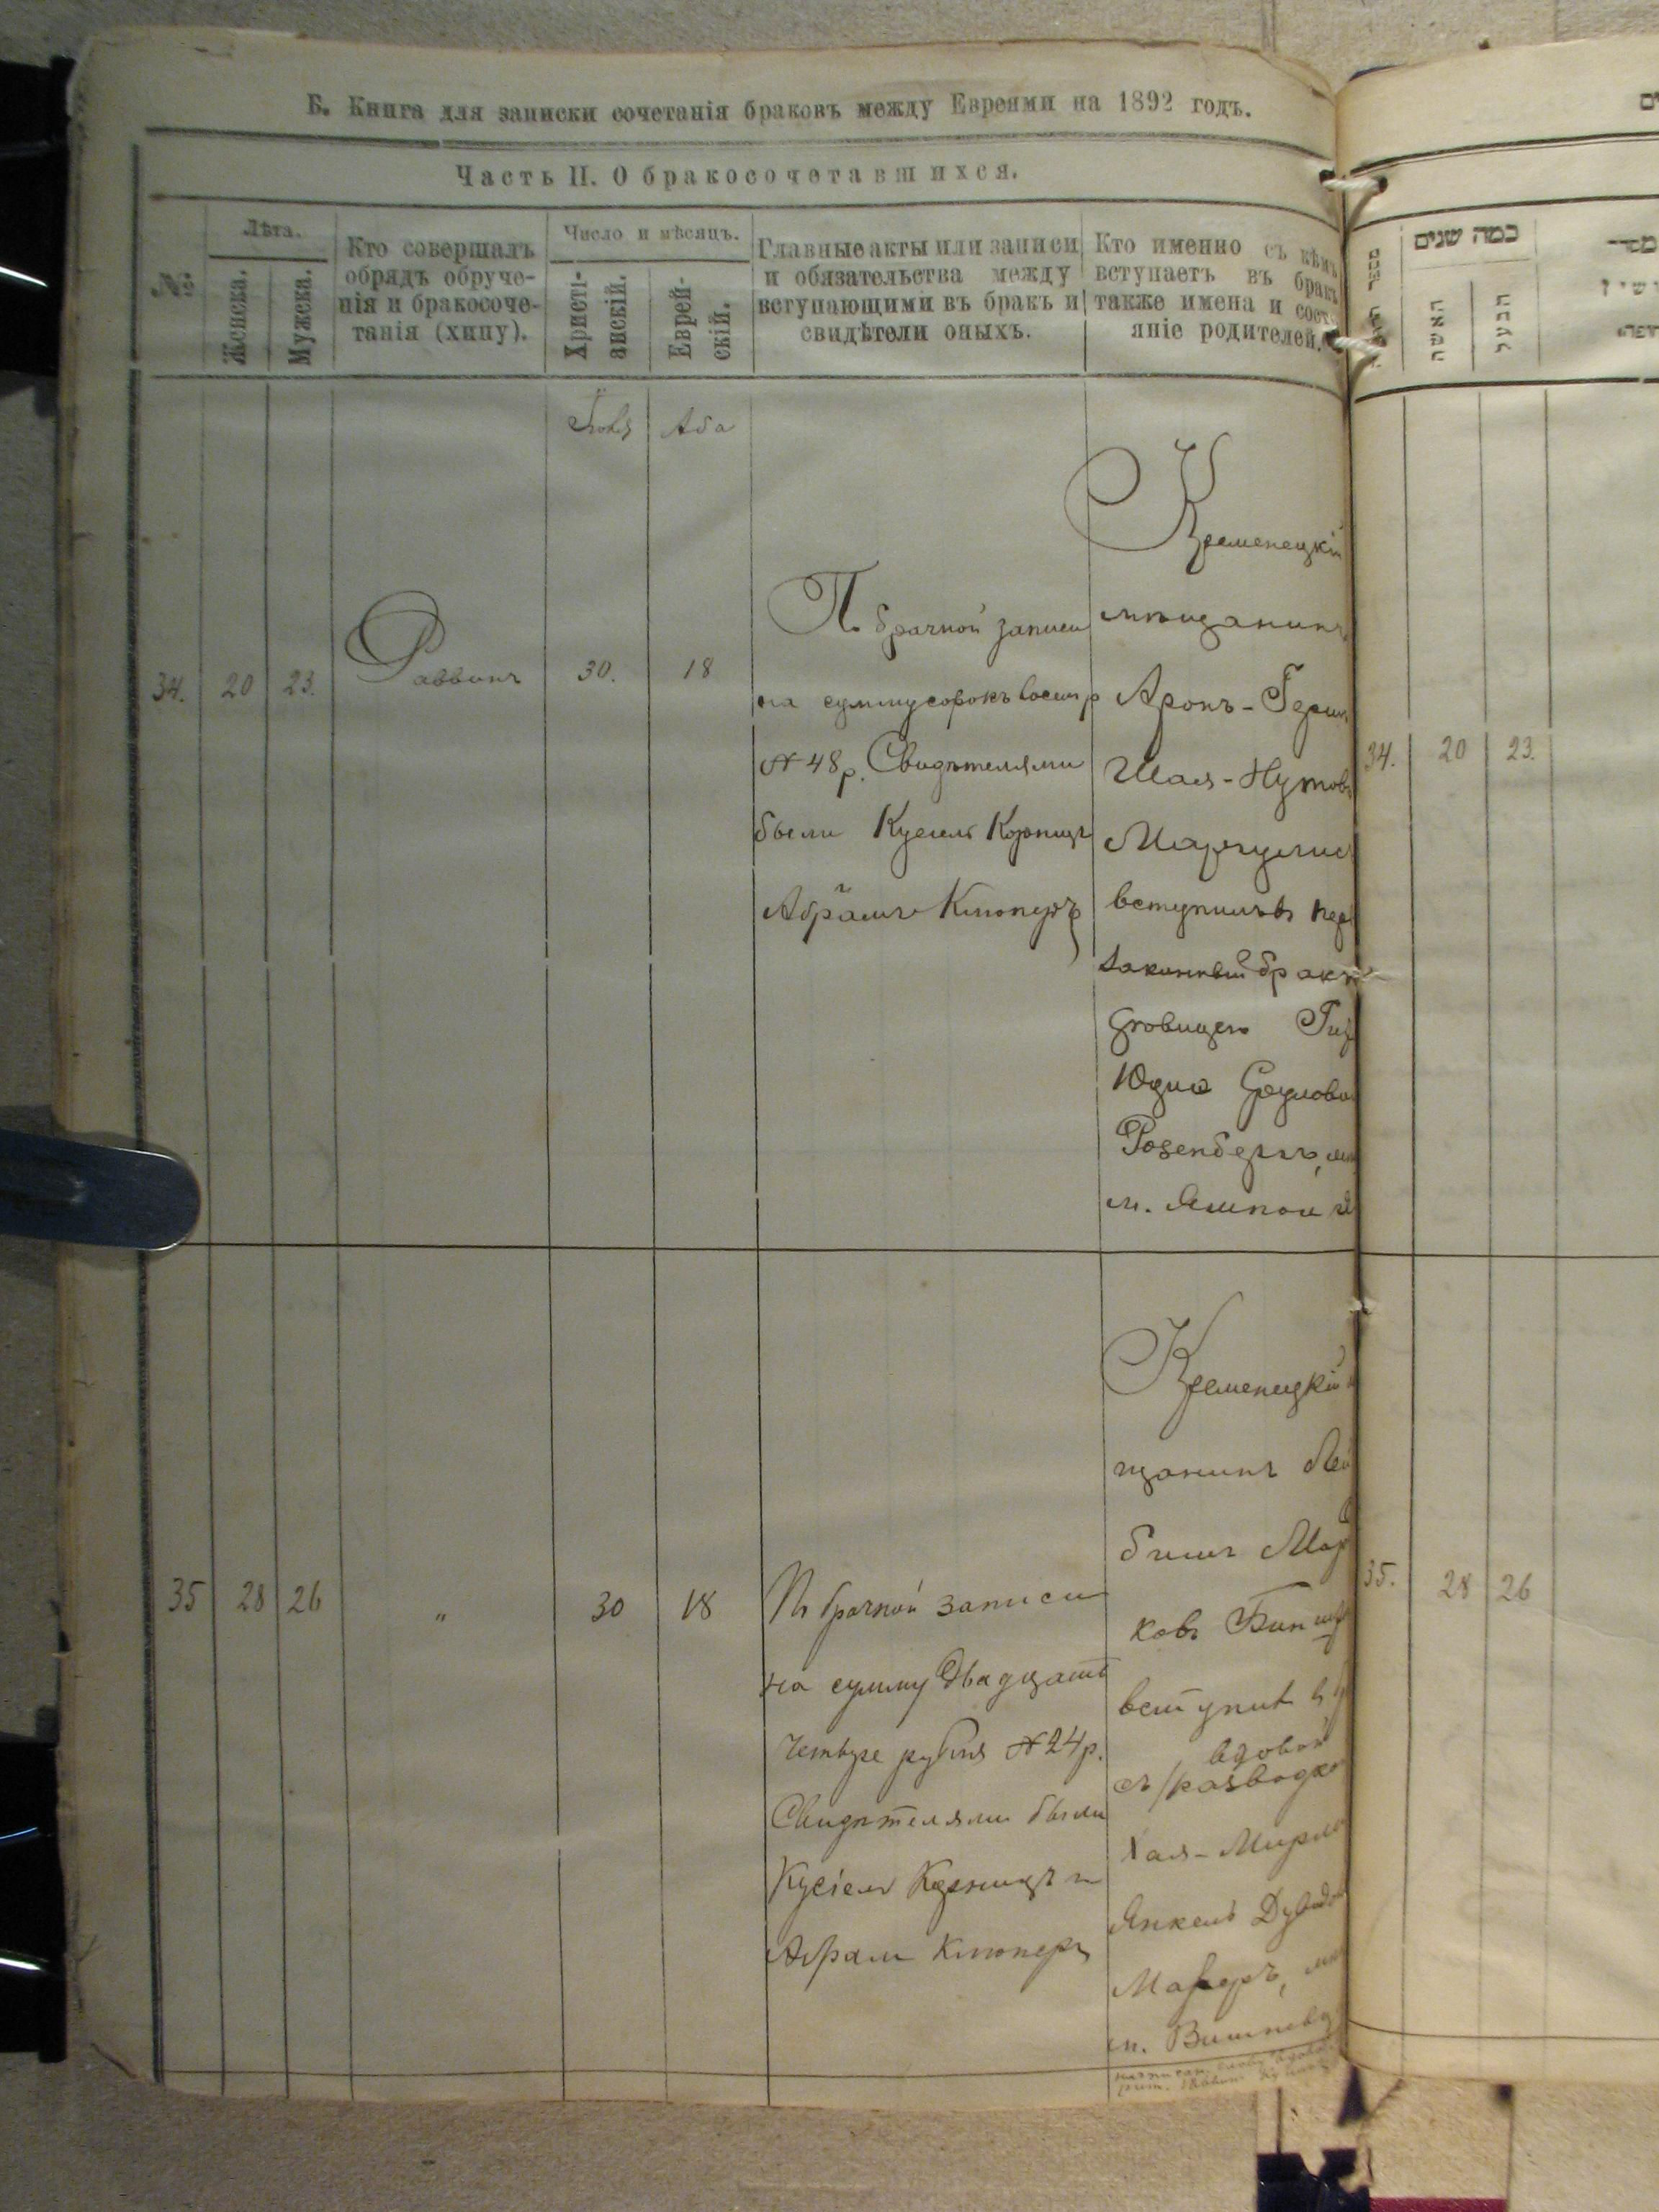 Б. Книга для записки сочетанія браковъ между Евреями на 1892 годъ.
Часть II. О бракосочетавшихся.
№
Лѣта.
Женска.
Мужеска.
Кто совершалъ
обрядъ обруче-
нія и бракосоче-
танія (хипу).
Число и мѣсяцъ.
Христі-
анскій.
Еврей-
скій.
Главные акты или записи
и обязательства между
вступающими въ бракъ и
свидѣтели оныхъ.
Кто именно съ кѣмъ
вступаетъ въ бракъ
также имена и сост-
яніе родителей.
Аба
34.
20
23.
Раввинъ
30.
18
По брачной записи
на сумму сорокъ восемь р
№ 48 р. Свидѣтелями
были Кусіель Корницъ
Абрамъ Клюперъ
Кременецкій
мѣщанинъ
Аронъ-Герш
Шая-Нутов
Маргулис
вступилъ въ пер
законный бракъ
дѣвицею
Юдио Сруловой
Розенбергъ,
м. Ямпол
35
28
26
"
30
18
По брачной записи
на сумму двадцать
четыре рубля № 24 р.
Свидѣтелями были
Кусіель Корницъ и
Абрам Клюперъ
Кременецкій
щанинъ Лей
бишъ Мор
ковъ
вступив въ
вдовой
съ разводкой
Хая-Мирля
Янкель Дувидов
м. Вишневц
כמה שנים
האשה
הבעל
34.
20
23.
35.
28
26